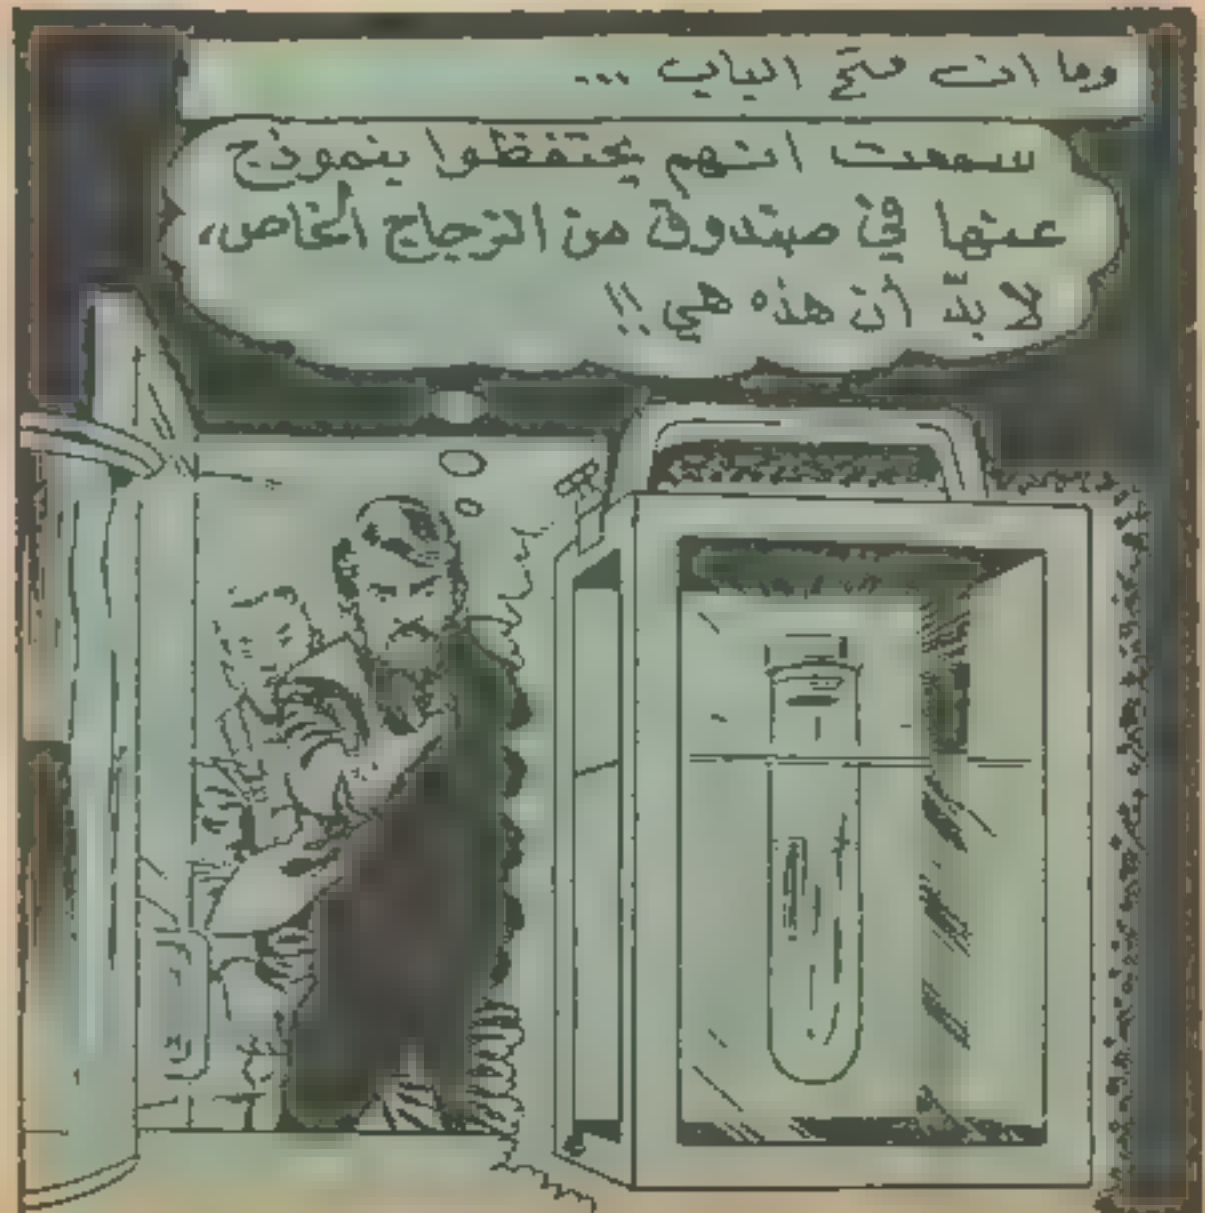 وما ان فتح الباب ...
سمعت انهم يحتفظوا بنموذج
عنها في صندوق من الزجاج الخاص،
لا بدّ أن هذه هي !!